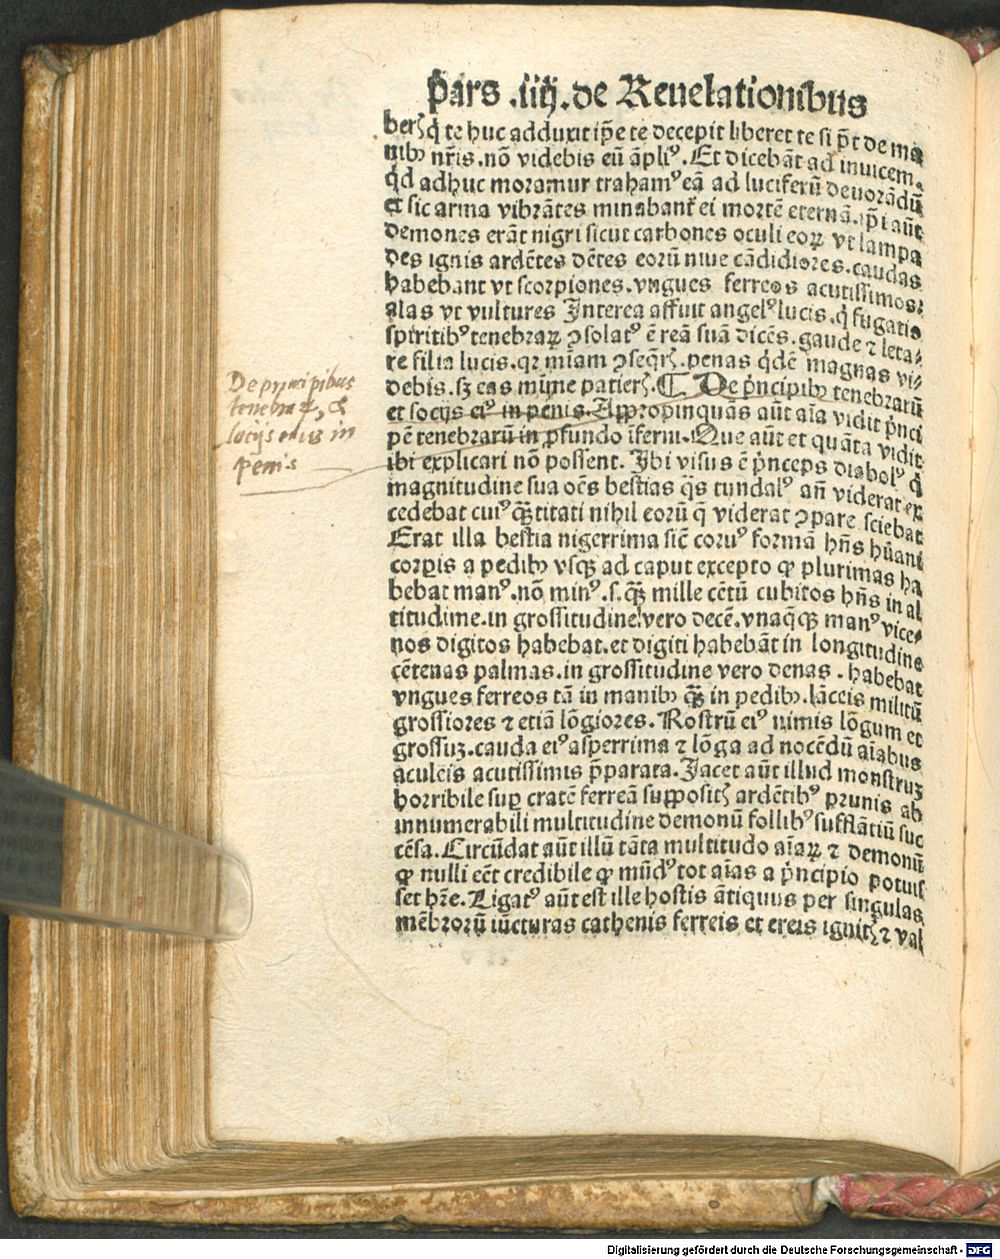 ṕars .iiij. de Reuelationibus
berꝭ q̇ te huc adduxit ip̄e te decepit liberet te si p̄t de ma
nibꝰ nr̄is. nō videbis eū āpliꝰ. Et dicebāt ad inuicem.
qd̓ adhuc moramur trahamꝰ eā ad luciferū deuorādū
et sic arma vibrātes minabant᷑ ei mortē eternā. ip̄i aūt
demones erāt nigri sicut carbones oculi eoꝝ vt lampa
des ignis ardētes dētes eorū niue cādidiores. caudas
habebant vt scorpiones. vngues ferreos acutissimos.
alas vt vultures Interea affuit angelꝰ lucis. q̇ fugatis
spiritibꝰ tenebraꝝ ꝯsolatꝰ ē reā suā dicēs. gaude ⁊ leta-
re filia lucis. qꝛ mīam ꝯseq̄rꝭ. penas qd̓ē magnas vi-
debis. sꝫ eas mīme patierꝭ. ¶ De p̓ncipibꝰ tenebrarū
et socijs eiꝰ in penis. Appropinquās aūt aīa vidit p̓nci
pē tenebrarū in ꝓfundo īferni. Que aūt et quāta vidit
ibi explicari nō possent. Ibi visus ē p̓nceps diabolꝰ q̇
magnitudine sua oēs bestias q̄s tundalꝰ an̄ viderat ex
cedebat cuiꝰ quātitati nihil eorū q̄ viderat ꝯpare sciebat
Erat illa bestia nigerrima sic̄ coruꝰ formā hn̄s hūani
corꝑis a pedibꝰ vsqꝫ ad caput excepto ꝙ plurimas ha
bebat manꝰ. nō minꝰ. s. qꝫ mille cētū cubitos hn̄s in al
titudīme. in grossitudine vero decē. vnaq̄qꝫ manꝰ vice-
nos digitos habebat. et digiti habebāt in longitudine
cētenas palmas. in grossitudine vero denas . habebat
vngues ferreos tā in manibꝰ qꝫ in pedibꝰ. lāceis militū
grossiores ⁊ etiā lōgiores. Rostrū eiꝰ nimis lōgum et
grossuꝫ. cauda eiꝰ asperrima ⁊ lōga ad nocēdū aīabus
aculeis acutissimis p̄parata. Iacet aūt illud monstruꝫ
horribile suꝑ cratē ferreā suppositꝭ ardētibꝰ prunis ab
innumerabili multitudine demonū follibꝰ sufflātiū suc
cēsa. Circūdat aūt illū tāta multitudo aīaꝝ ⁊ demonū
ꝙ nulli eēt credibile ꝙ mūdꝰ tot aīas a p̓ncipio potuis
set hr̄e. Ligatꝰ aūt est ille hostis ātiquus per singulas
mēbrorū iūcturas cathenis ferreis et ereis ignitꝭ ⁊ val
De pryncipibus
tenebraꝝ, &
socijs eius in
penis
Digitalisierung gefördert durch die Deutsche Forschungsgemeinschaft - DFG